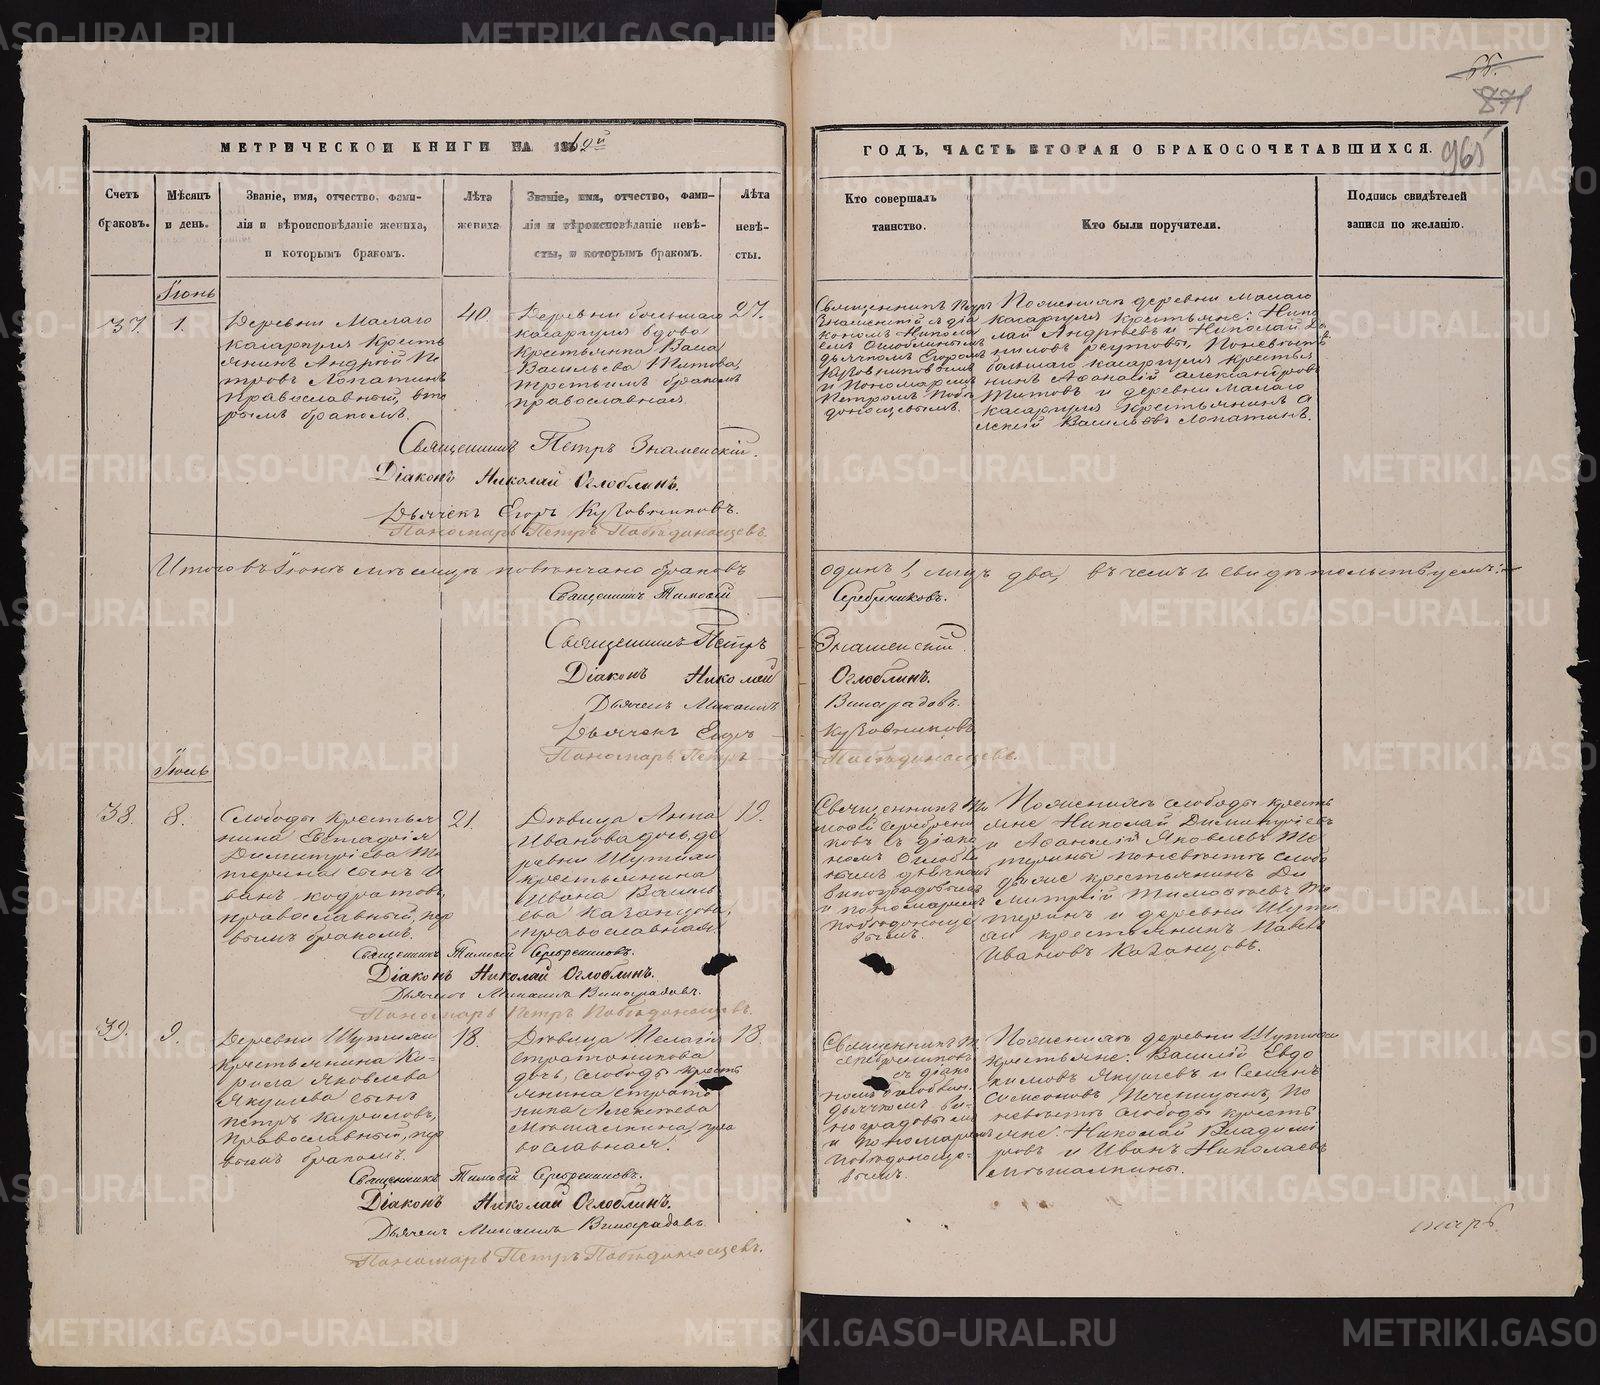 66.
871
965
МЕТРИЧЕСКОЙ КНИГИ НА 1862й
ГОДЪ, ЧАСТЬ ВТОРАЯ О БРАКОСОЧЕТАВШИХСЯ.
Счетъ
браковъ.
Мѣсяцъ
и день.
Званіе, имя, отчество, фами-
лія и вѣроисповѣданіе жениха,
и которымъ бракомъ.
Лѣта
жениха
Званіе, имя, отчество, фами-
лія и вѣроисповѣданіе невѣ-
сты, и которымъ бракомъ.
Лѣта
невѣ-
сты.
Кто совершалъ
таинство.
Кто были поручители.
Подпись свидѣтелей
записи по желанію.
Іюнь
37.
1.
Деревни Малаго
Касаргуля Кресть
янинъ Андрей Пе
тровъ Лопатинъ
Православный, вто
рымъ бракомъ.
40.
Деревни большаго
Касаргуля вдова
Крестьянка Васса
Васильева Титова,
третьимъ бракомъ
православная.
27.
Священникъ Петръ
Знаменскій съ діа
кономъ Никола
емъ Оглоблинымъ
дьячкомъ Егоромъ
и Пономаремъ
Петромъ Побѣ
доносцевымъ.
По женихѣ деревни Малаго
Касаргуля Крестьяне: Нико
лай Андреевъ и Николай Да
ниловъ Реутовы, По невѣстѣ
большаго Касаргуля Кресть
нинъ Афанасій Александровъ
Титовъ и деревни Малаго
Касаргуля Крестьянинъ А
лексѣй Васильевъ Лопатинъ.
Священникъ Петръ Знаменскій.
Діаконъ Николай Оглоблинъ.
Дьячекъ Егоръ
Пономарь Петръ Побѣдоносцевъ.
Итого въ Іюнѣ мѣсяцѣ повѣнчано браковъ один 1, лицъ два, въ чемъ и свидѣтельствуемъ:
Священникъ Тимофей Серебрениковъ.
Священникъ Петръ Знаменскій.
Діаконъ Николай Оглоблинъ.
Дьячекъ Михаилъ Виноградовъ.
Дьячекъ Егоръ
Пономарь Петръ Побѣдоносцевъ.
Іюль
38.
8.
Слободы Крестья
нина Евстафія
Димитріева Те
терина сынъ И
ванъ Кодратовъ,
православный, пер
вымъ бракомъ.
21.
Дѣвица Анна
Иванова дочь, де
ревни Шутихи
крестьянина
Ивана Василь
ева Казанцова,
православная
19.
Священникъ Ти
мофей Серебрени
ковъ съ діако
номъ Оглобли
нымъ дьячкомъ
Виноградовымъ
и пономаремъ
Побѣдоносце
вымъ.
По женихѣ слободы кресть
яне Николай Димитріевъ
и Афанасій Яковлевъ Те
терины по невѣстѣ слобо
ды же крестьянинъ Ди
митрій Тимофѣевъ Те
теринъ и деревни Шути
хи крестьянинъ Павелъ
Ивановъ Казанцовъ.
Священникъ Тимофей Серебрениковъ.
Діаконъ Николай Оглоблинъ.
Дьячекъ Михаилъ Виноградовъ.
Пономарь Петръ Побѣдоносцевъ.
39.
9.
Деревни Шутихи
крестьянина Ки-
рила Яковлева
Якушева сынъ
Петръ Кириловъ,
Православный, пер
вымъ бракомъ.
18.
Дѣвица Пелагія
Стратоникова
дочь, слободы кресть
янина Страто
ника Алексѣева
Мѣшалкина, пра
вославная.
18.
Священникъ Т.
Серебрениковъ
съ діако
номъ Оглоблин.
дьячкомъ Ви-
ноградовымъ
и пономаремъ
Побѣдоносце-
вымъ.
По женихѣ деревни Шутихи
Крестьяне: Василій Евдо
кимовъ Якушевъ и Семенъ
Самсоновъ Печеницынъ, по
невѣстѣ слободы кресть
яне: Николай Владимі
ровъ и Иванъ Николаевъ
Мѣшалкины.
Священникъ Тимофей Серебрениковъ.
Діаконъ Николай Оглоблинъ.
Дьячекъ Михаилъ Виноградовъ.
Пономарь Петръ Побѣдоносцевъ.
METRIKI.GASO-URAL.RU